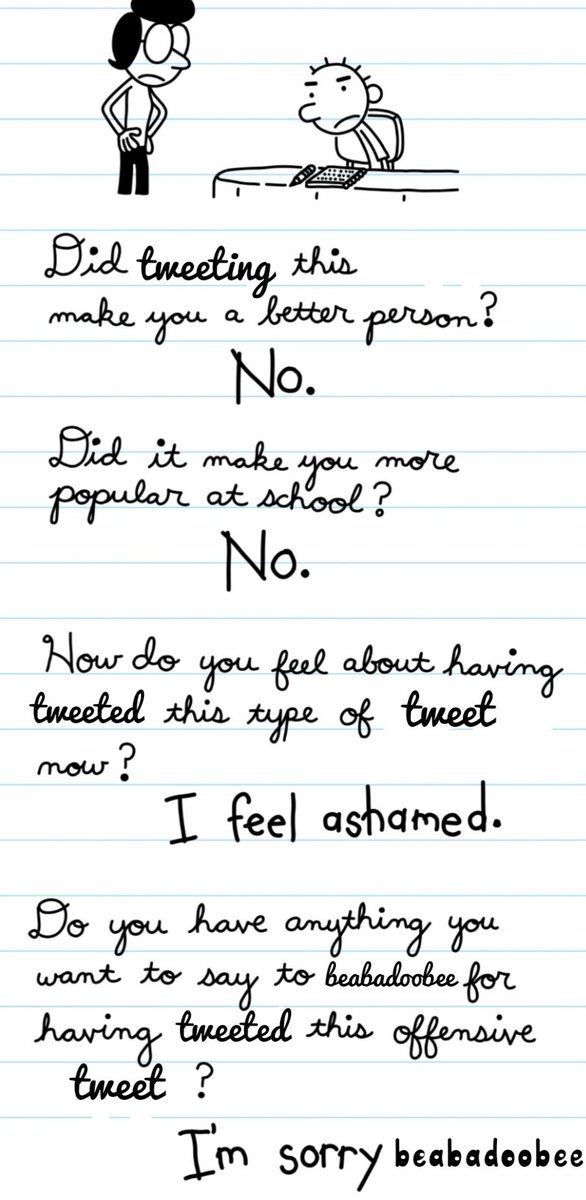 Did tweeting this
make you a better person?
No.
Did it make you more
popular at school?
No.
How do you feel about having
tweeted this type of tweet
now?
I feel ashamed.
Do you have anything you
want to say to beabadoobee for
having tweeted this offensive
tweet ?
I'm sorry beabadoobee